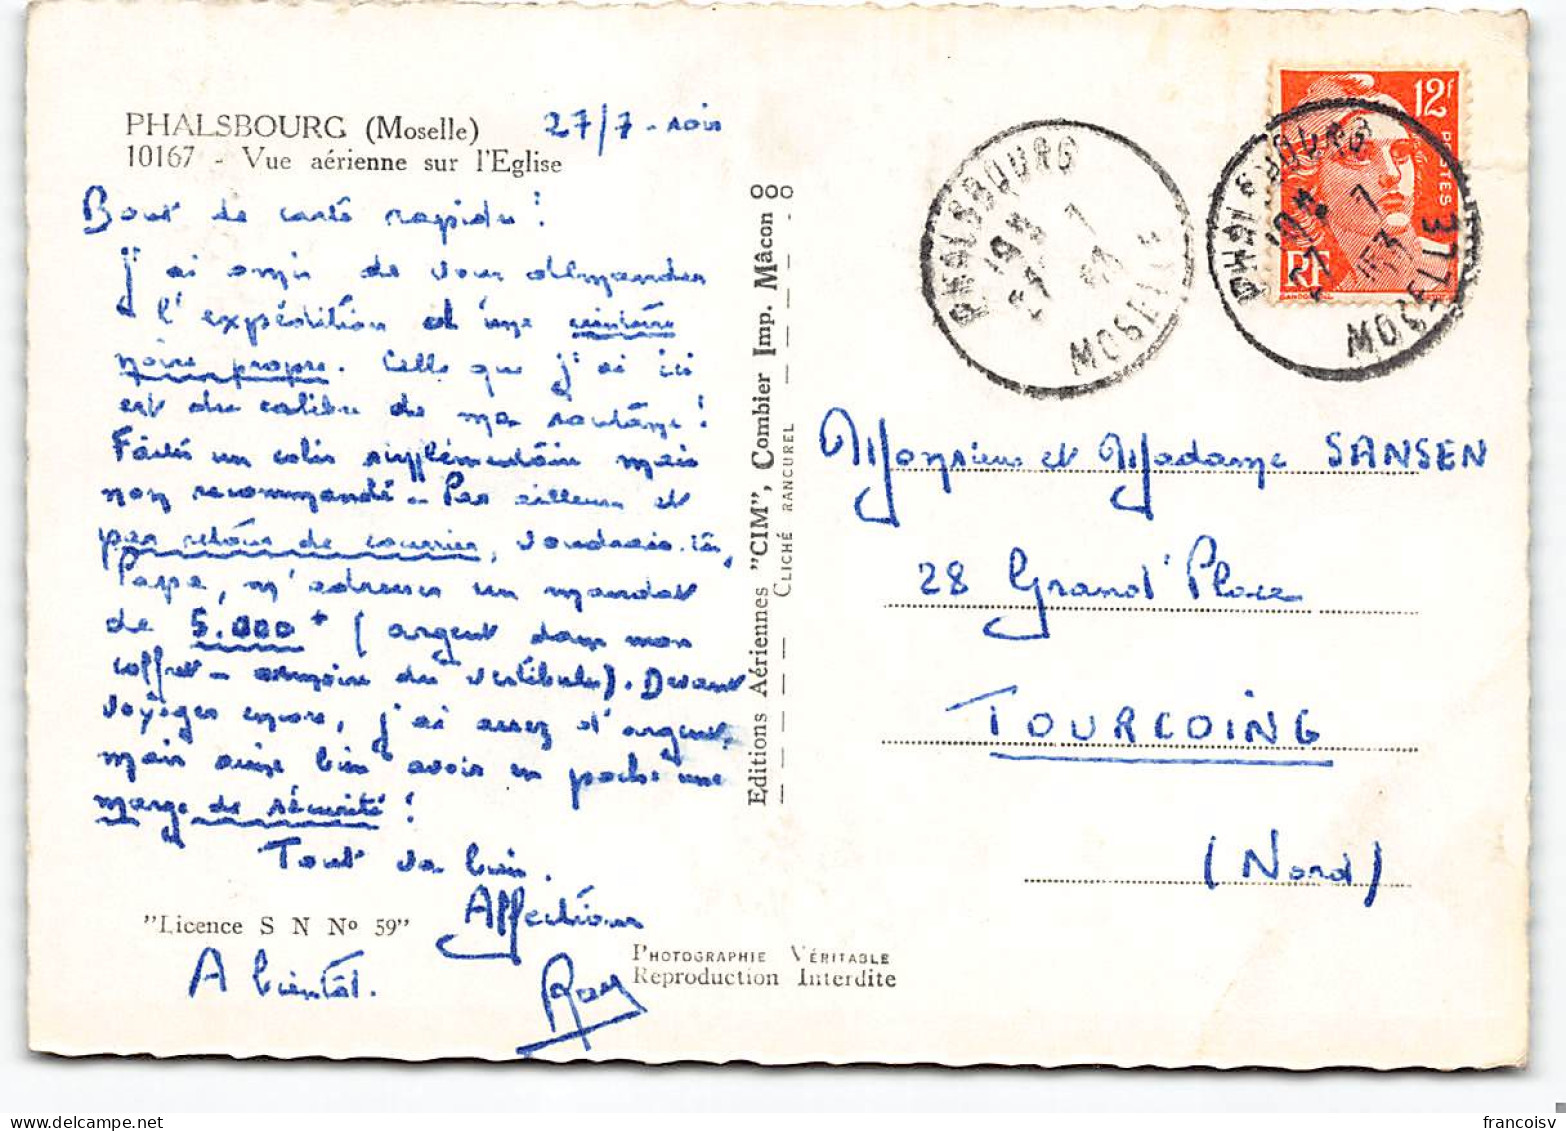 PHALSBOURG (Moselle) 27/7 - soir
10167 - Vue aérienne sur l'Eglise
Bout de carte rapide !
J'ai omis de vous demander
l'expédition d'une ceinture
noire propre. Celle que j'ai ici
est du calibre de ma soutane !
Faites un colis supplémentaire mais
non recommandé - Par ailleurs et
par retour de courrier, voudrais-tu,
Papa, m'adresser un mandat
de 5.000 f (argent dans mon
coffret - armoire du vestibule). Devant
voyager encore, j'ai assez d'argent,
mais aime bien avoir en poche une
marge de sécurité !
Tout va bien.
Affections
"Licence S N No 59"
A bientôt.
Ray
PHOTOGRAPHIE VÉRITABLE
Reproduction Interdite
Editions Aériennes "CIM", Combier Imp. Mâcon
CLICHÉ RANCUREL
PHALSBOURG
19H
27 7
53
MOSELLE
PHALSBOURG
19H
27 7
1953
MOSELLE
12F
POSTES
RF
GANDON
Monsieur et Madame SANSEN
28 Grand'Place
TOURCOING
(Nord)
francoisv